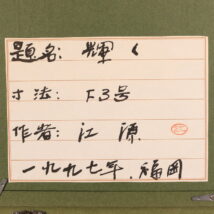 题名：輝く
寸法：F3号
作者：江源
一九九七年.福岡